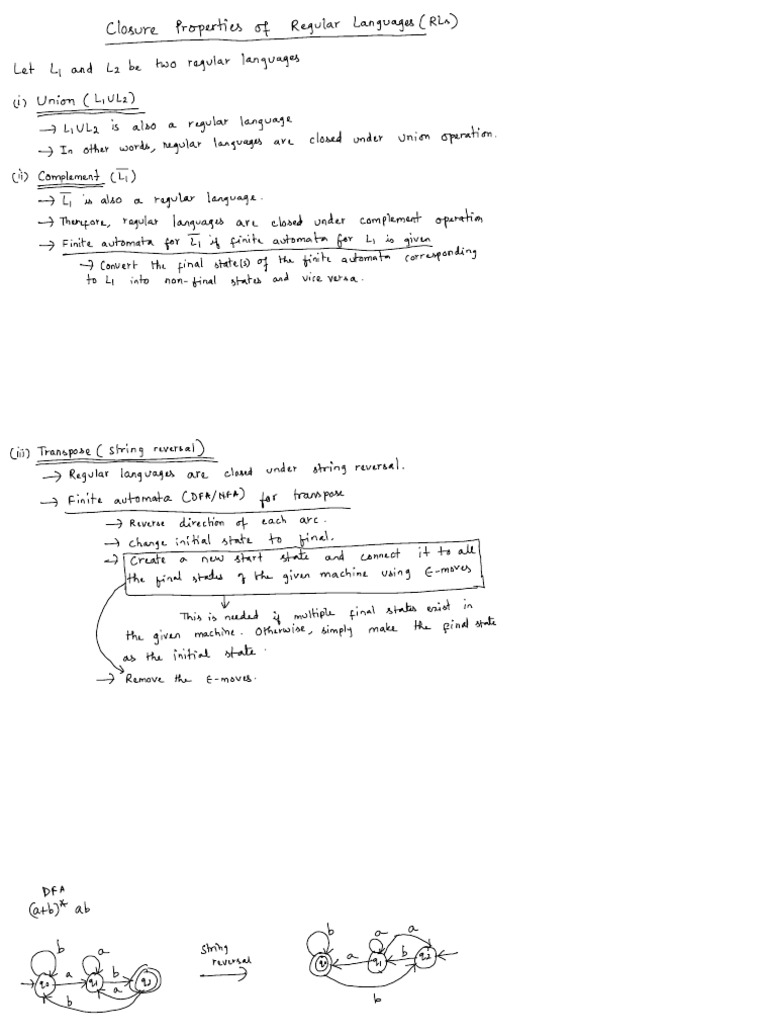 Closure Properties of Regular Languages (RLs)
Let L1 and L2 be two regular languages
(i) Union (L1UL2)
→ L1UL2 is also a regular language
→ In other words, regular languages are closed under union operation.
(ii) Complement (L̅1)
→ L̅1 is also a regular language.
→ Therefore, regular languages are closed under complement operation
→ Finite automata for L̅1 if finite automata for L1 is given
→ Convert the final state(s) of the finite automata corresponding
to L1 into non-final states and vice versa.
(iii) Transpose (String reversal)
→ Regular languages are closed under string reversal.
→ Finite automata (DFA/NFA) for transpose
→ Reverse direction of each arc.
→ Change initial state to final.
→ Create a new start state and connect it to all
the final states of the given machine using ε-moves
This is needed if multiple final states exist in
the given machine. Otherwise, simply make the final state
as the initial state.
→ Remove the ε-moves.
DFA
(a+b)* ab
b a a b a b q0 q1 q2
String
reversal
b a a a b b q0 q1 q2